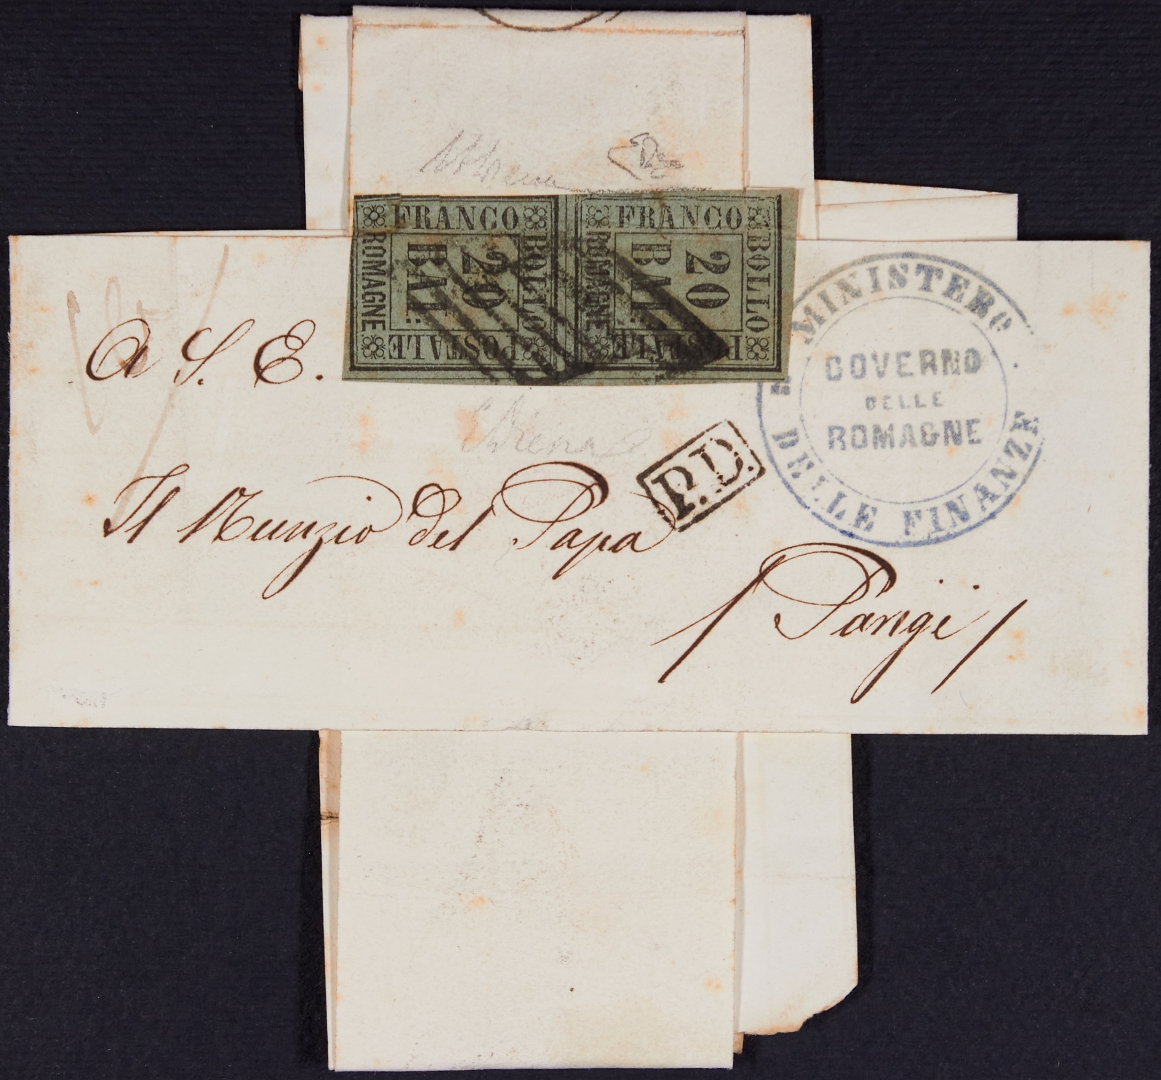 FRANCO BOLLO POSTALE ROMAGNE
20
BAI:
FRANCO BOLLO POSTALE ROMAGNE
20
BAI:
MINISTERO DELLE FINANZE
GOVERNO
DELLE
ROMAGNE
A S. E.
EDiena
P.D.
Il Nunzio del Papa
/ Parigi /